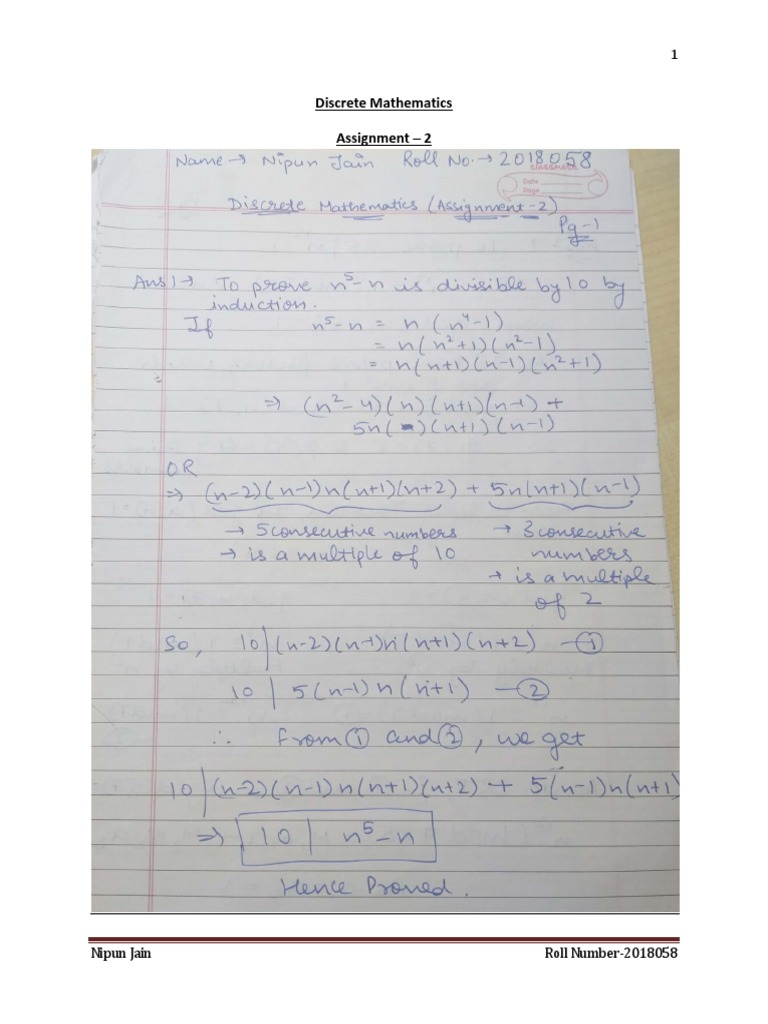 1
Discrete Mathematics
Assignment – 2
Name → Nipun Jain Roll No. → 2018058
classmate
Date
Page
Discrete Mathematics (Assignment-2)
Pg-1
Ans1→ To prove n⁵-n is divisible by 10 by
induction.
If n⁵-n = n(n⁴-1)
= n(n²+1)(n²-1)
= n(n+1)(n-1)(n²+1)
=
⇒ (n²-4)(n)(n+1)(n-1) +
5n( )(n+1)(n-1)
OR
⇒ (n-2)(n-1)n(n+1)(n+2) + 5n(n+1)(n-1)
→ 5 consecutive numbers → 3 consecutive
→ is a multiple of 10 numbers
→ is a multiple
of 2
So, 10|(n-2)(n-1)n(n+1)(n+2) —①
10 | 5(n-1)n(n+1) —②
∴ From ① and ②, we get
10|(n-2)(n-1)n(n+1)(n+2) + 5(n-1)n(n+1)
⇒ 10 | n⁵-n
Hence Proved.
Nipun Jain Roll Number-2018058